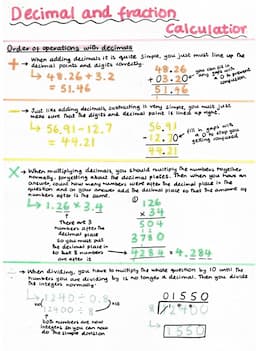 Decimal and fraction
Calculation
Order of operations with decimals
+ → When adding decimals it is quite simple, you just must line up the
decimal points and digits correctly.
↳ 48.26 + 3.2
= 51.46
48.26
+ 03.20
51.46
you can fill in
any gaps with
a 0 to prevent
confusion
- → Just like adding decimals, subtracting is very simple, you must just
make sure that the digits and decimal point is lined up right.
↳ 56.91 - 12.7
= 44.21
56.91
- 12.70
44.21
fill in gaps with
a 0 to stop you
getting confused
× → When multiplying decimals, you should multiply the numbers together
normally, forgetting about the decimal places. Then when you have an
answer, count how many numbers were after the decimal place in the
question and in your answer add the decimal place so that the amount of
numbers after is the same.
↳ 1.26 × 3.4
There are 3
numbers after the
decimal place
so you must put
the decimal place in
so that 3 numbers
are after it
126
× 34
504
3780
4284 → 4.284
÷ → When dividing, you have to multiply the whole question by 10 until the
numbers you are dividing by is no longer a decimal. Then you divide
the integers normally.
↳ 1240 ÷ 0.8
×10
×10
12400 ÷ 8
both numbers are now
integers so you can now
do the simple division
01550
8 12400
1550